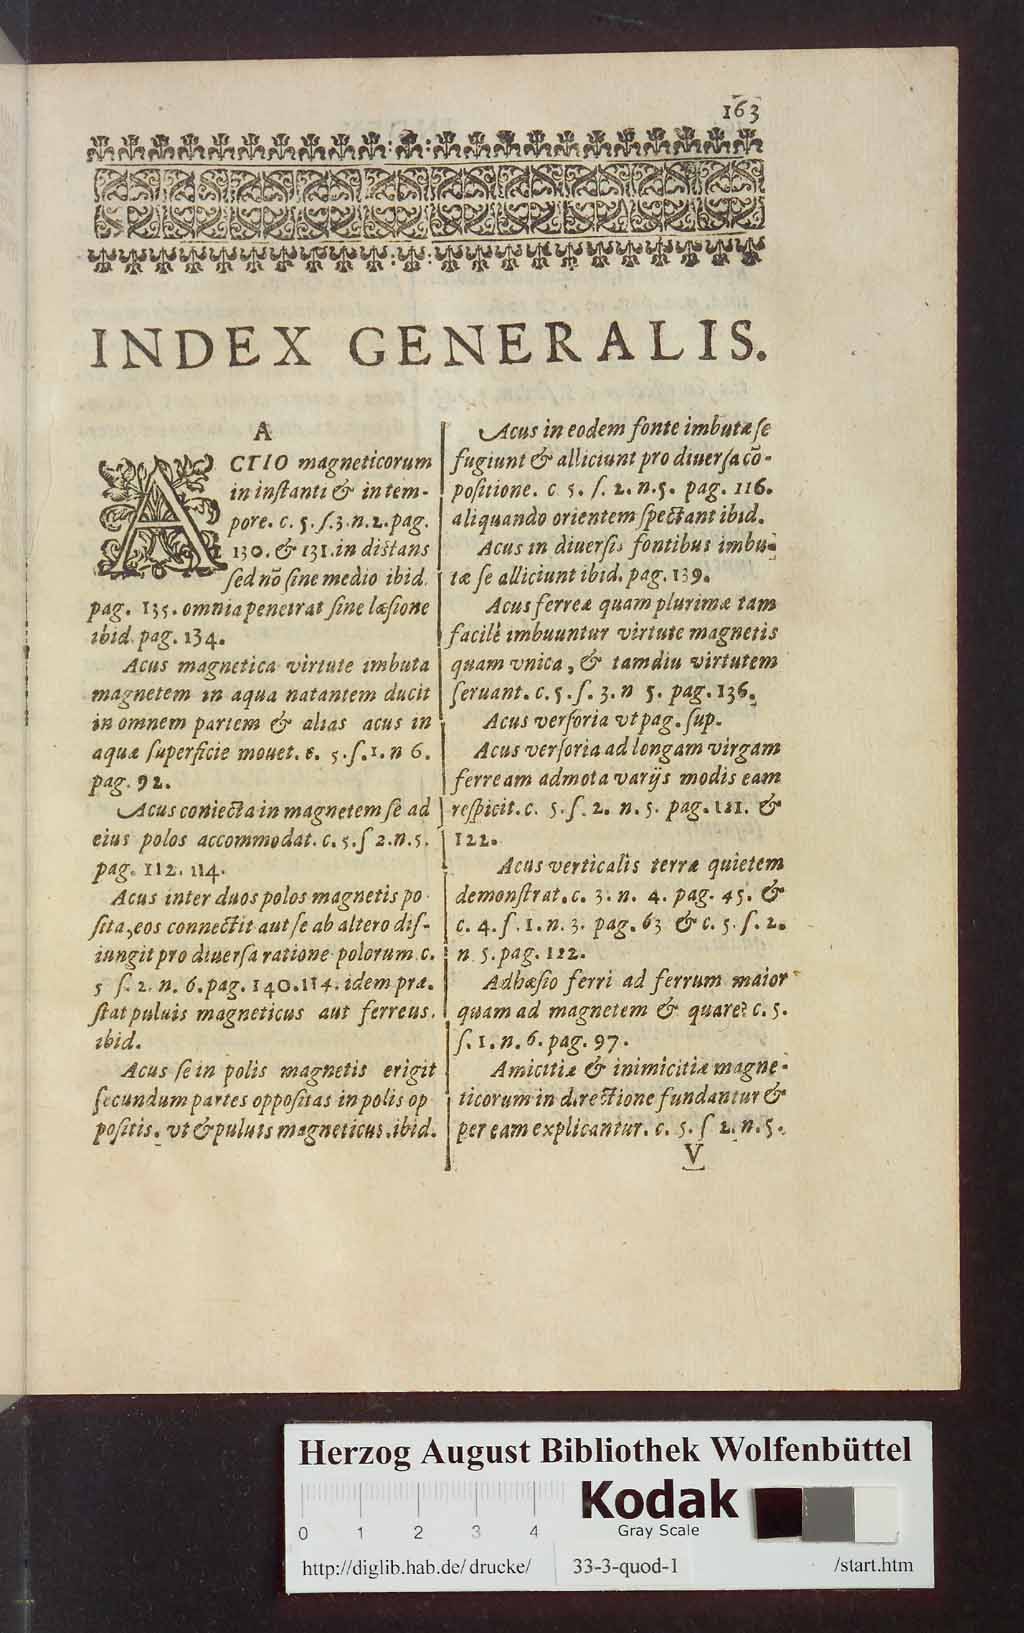 163
INDEX GENERALIS.
A
ACTIO magneticorum
in inſtanti & in tem-
pore. c. 5. ſ. 3. n. 2. pag.
130. & 131. in distans
ſed nō ſine medio ibid.
pag. 135. omnia penetrat ſine læſione
ibid. pag. 134.
Acus magnetica virtute imbuta
magnetem in aqua natantem ducit
in omnem partem & alias acus in
aquæ ſuperficie mouet. c. 5. ſ. 1. n 6.
pag. 92.
Acus coniecta in magnetem ſe ad
eius polos accommodat. c. 5. ſ 2. n. 5.
pag. 112. 114.
Acus inter duos polos magnetis po
ſita, eos connectit aut ſe ab altero diſ-
iungit pro diuerſa ratione polorum. c.
5 ſ. 2. n. 6. pag. 140. 114. idem præ.
ſtat puluis magneticus aut ferreus.
ibid.
Acus ſe in polis magnetis erigit
ſecundum partes oppoſitas in polis op
poſitis. vt & puluis magneticus. ibid.
Acus in eodem fonte imbutæ ſe
fugiunt & alliciunt pro diuerſa cō-
poſitione. c 5. ſ. 2. n. 5. pag. 116.
aliquando orientem ſpectant ibid.
Acus in diuerſis fontibus imbu-
tæ ſe alliciunt ibid. pag. 139.
Acus ferreæ quam plurimæ tam
facilè imbuuntur virtute magnetis
quam vnica, & tamdiu virtutem
ſeruant. c. 5. ſ. 3. n 5. pag. 136.
Acus verſoria vt pag. ſup.
Acus verſoria ad longam virgam
ferream admota varijs modis eam
reſpicit. c. 5. ſ. 2. n. 5. pag. 121. &
122.
Acus verticalis terræ quietem
demonſtrat. c. 3. n. 4. pag. 45. &
c. 4. ſ. 1. n. 3. pag. 63 & c. 5. ſ. 2.
n. 5. pag. 122.
Adhæſio ferri ad ferrum maior
quam ad magnetem & quare? c. 5.
ſ. 1. n. 6. pag. 97.
Amicitiæ & inimicitiæ magne-
ticorum in directione fundantur &
per eam explicantur. c. 5. ſ 2. n. 5.
V
Herzog August Bibliothek Wolfenbüttel
Kodak
Gray Scale
0 1 2 3 4
http://diglib.hab.de/drucke/ 33-3-quod-1 /start.htm